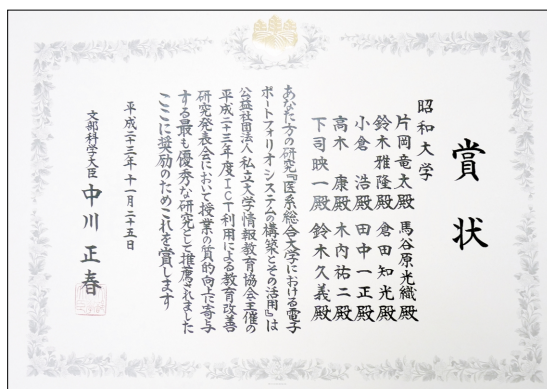 賞状
昭和大学
片岡竜太殿 馬谷原光織殿
鈴木雅隆殿 倉田知光殿
小倉浩殿 田中一正殿
高木康殿 木内祐二殿
下司映一殿 鈴木久義殿
あなた方の研究『医系総合大学における電子
ポートフォリオシステムの構築とその活用』は
公益社団法人私立大学情報教育協会主催の
平成二十三年度ICT利用による教育改善
研究発表会において授業の質的向上に寄与
する最も優秀な研究として推薦されました
ここに奨励のためこれを賞します
平成二十三年十一月二十五日
文部科学大臣 中川正春